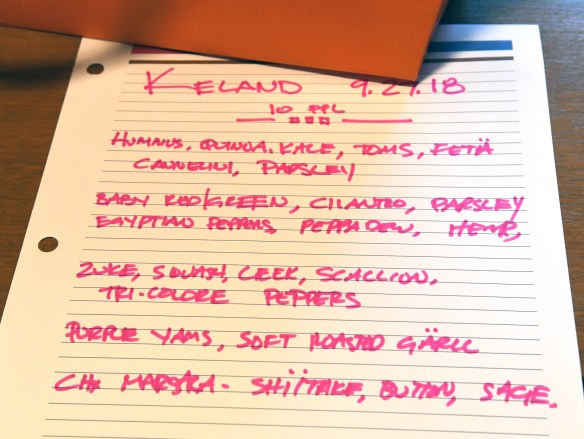 KELAND 9.27.18
10 PPL
HUMMUS, QUINOA. KALE, TOMS, FETÄ
CANNELINI, PARSLEY
BABY RED/GREEN, CILANTRO, PARSLEY
EGYPTIAN PEPPERS, PEPPADEW, HEMP,
ZUKE, SQUASH, LEEK, SCALLION,
TRI-COLORE PEPPERS
PURPLE YAMS, SOFT ROASTED GÄRLIC
CHX MARSALA - SHIITAKE, BUTTON, SAGE.